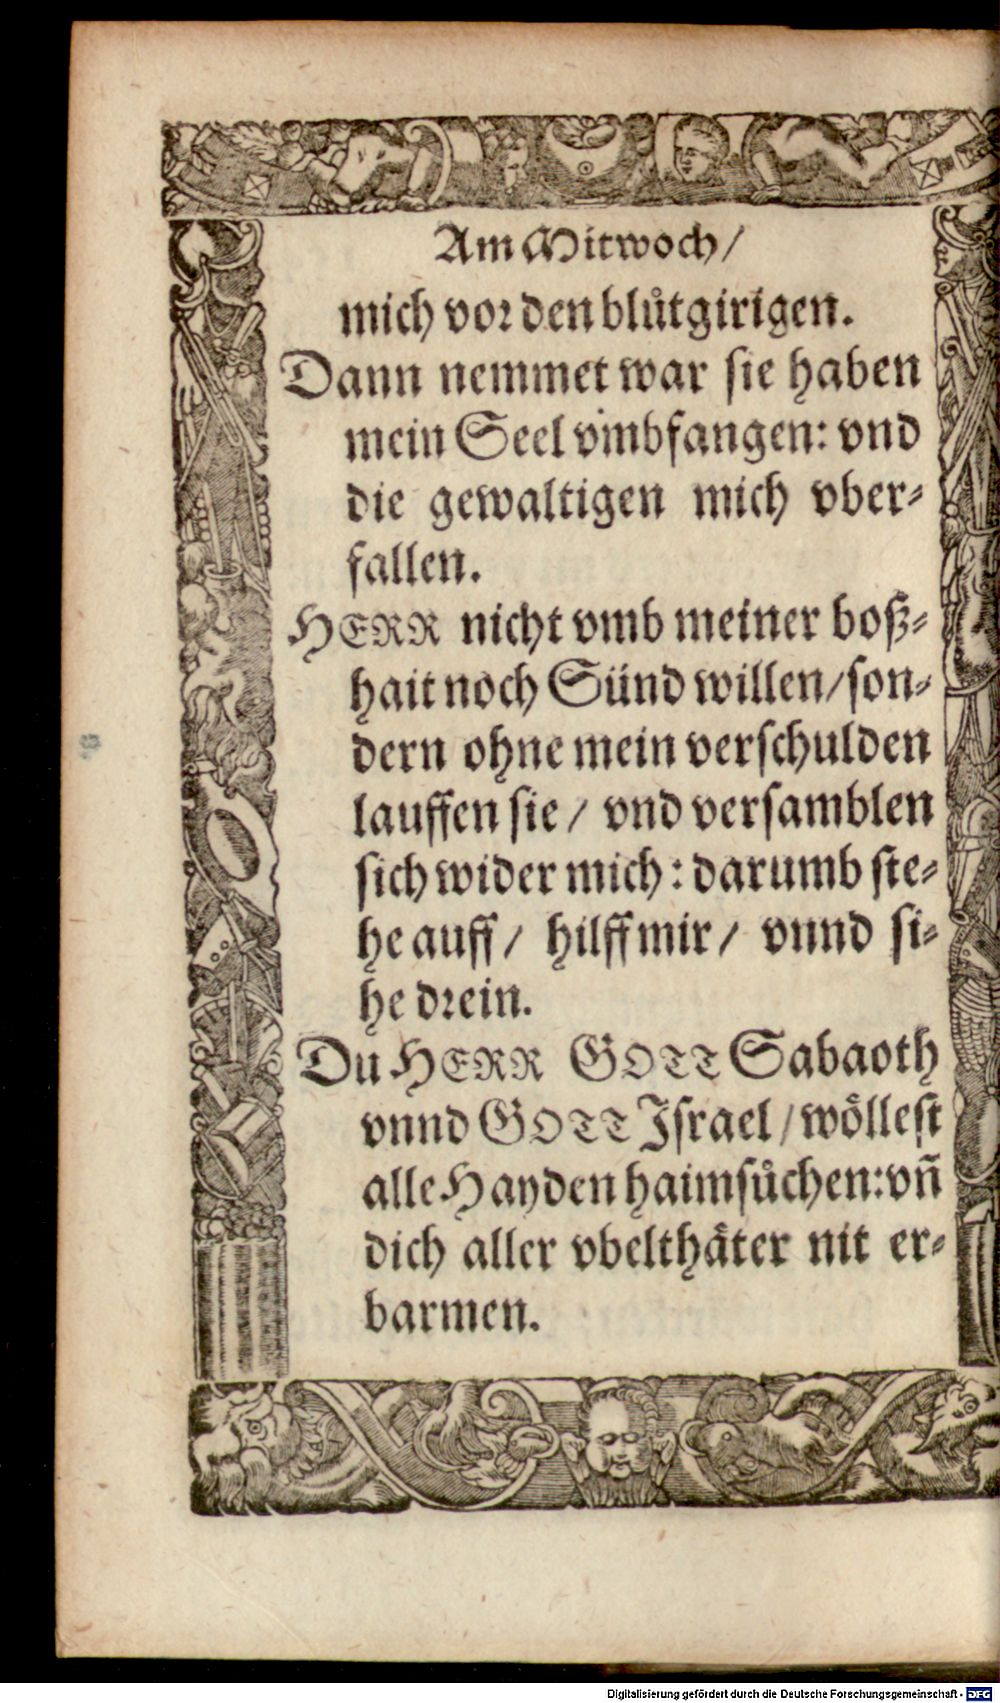 Am Mitwoch/
mich vor den blůtgirigen.
Dann nemmet war sie haben
mein Seel vmbfangen: vnd
die gewaltigen mich vber⸗
fallen.
HERR nicht vmb meiner boß⸗
hait noch Sünd willen/ son⸗
dern ohne mein verschulden
lauffen sie / vnd versamblen
sich wider mich: darumb ste⸗
he auff / hilff mir / vnnd si⸗
he drein.
Du HERR GOTT Sabaoth
vnnd GOTT Israel / wöllest
alle Hayden haimsůchen: vñ
dich aller vbelthäter nit er⸗
barmen.
Digitalisierung gefördert durch die Deutsche Forschungsgemeinschaft - DFG